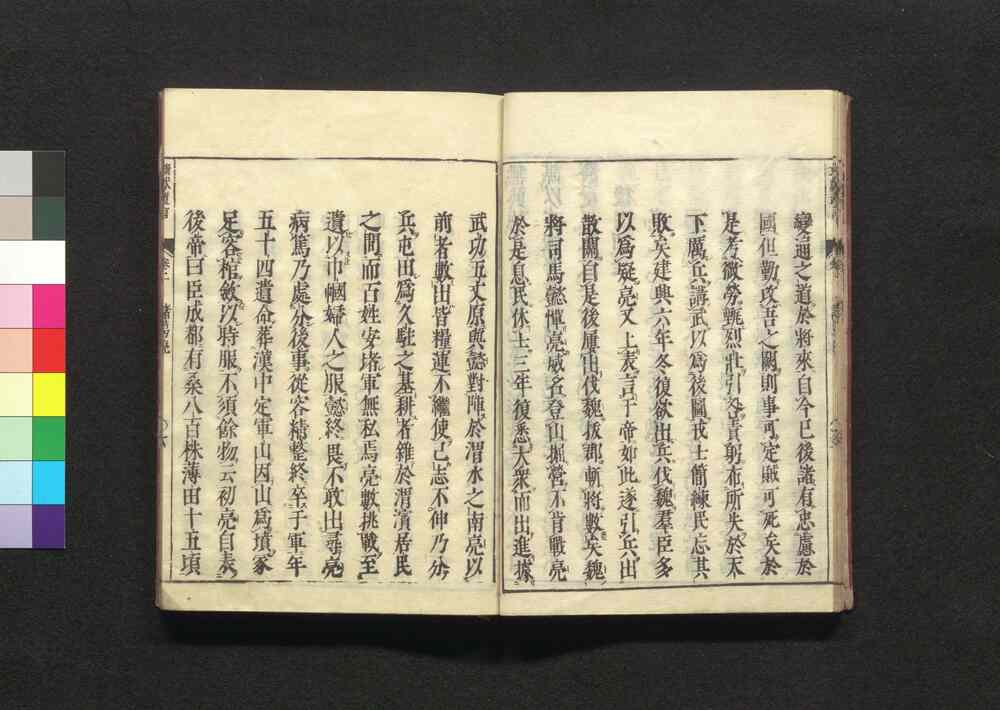 變通之道於將來自今已後諸有忠慮於
國但勤攻吾之闕則事可定賊可死矣於
是考微勞甄烈壯引咎責躬布所失於天
下厲兵講武以爲後圖戎士簡練民忘其
敗矣建興六年冬復欲出兵伐魏羣臣多
以爲疑亮又上表言于帝如此遂引兵出
散關自是後屢出伐魏拔郡斬將數矣魏
將司馬懿憚亮威名登山掘營不肯戰亮
於是息民休士三年復悉大衆而出進據
武功五丈原與懿對陣於渭水之南亮以
前者數出皆糧運不繼使己志不伸乃分
兵屯田爲久駐之基耕者雜於渭濱居民
之間而百姓安堵軍無私焉亮數挑戰至
遺以巾幗婦人之服懿終畏不敢出尋亮
病篤乃處分後事從容結整終卒于軍年
五十四遺命葬漢中定軍山因山爲墳冢
足容棺斂以時服不須餘物云初亮自表
後帝曰臣成都有桑八百株薄田十五頃
卷二